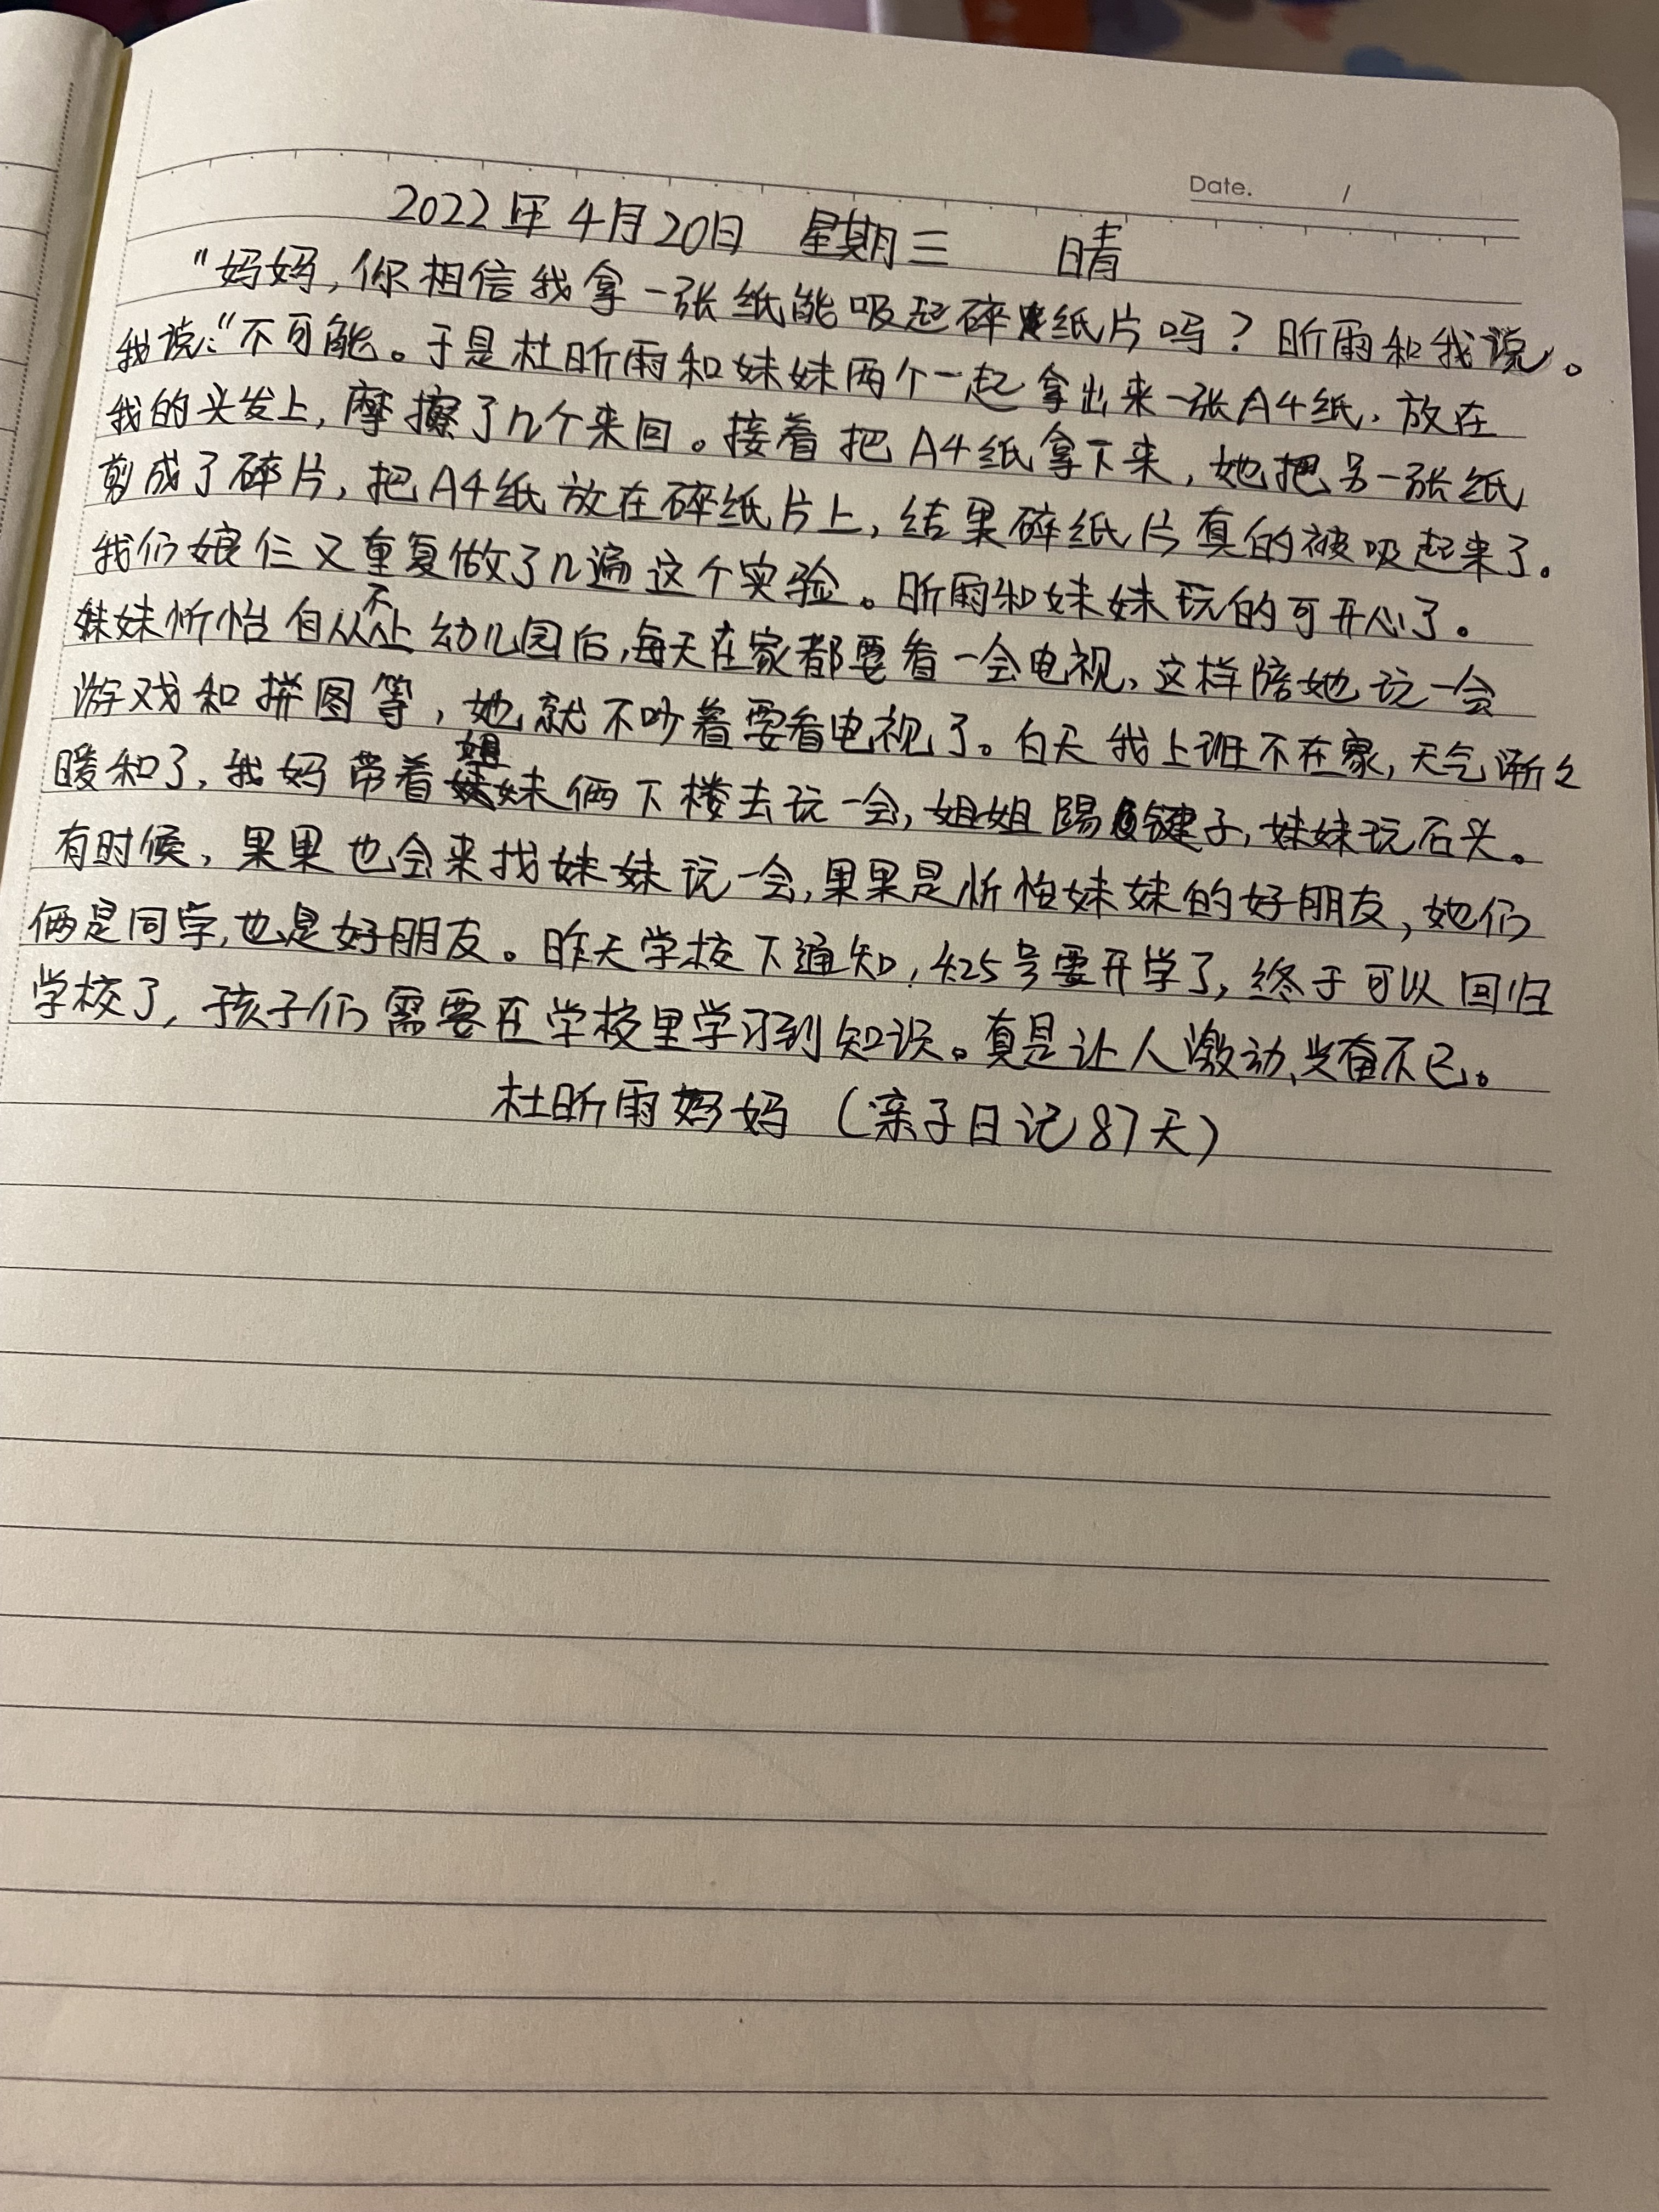 Date. /
2022年4月20日 星期三 晴
"妈妈,你相信我拿一张纸能吸起碎纸片吗?昕雨和我说。
我说:"不可能。于是杜昕雨和妹妹两个一起拿出来一张A4纸,放在
我的头发上,摩擦了几个来回。接着把A4纸拿下来,她把另一张纸
剪成了碎片,把A4纸放在碎纸片上,结果碎纸片真的被吸起来了。
我们娘仨又重复做了几遍这个实验。昕雨和妹妹玩的可开心了。
妹妹忻怡自从不上幼儿园后,每天在家都要看一会电视,这样陪她玩一会
游戏和拼图等,她就不吵着要看电视了。白天我上班不在家,天气渐々
暖和了,我妈带着姐妹俩下楼去玩一会,姐姐踢键子,妹妹玩石头。
有时候,果果也会来找妹妹玩一会,果果是忻怡妹妹的好朋友,她们
俩是同学,也是好朋友。昨天学校下通知,4.25号要开学了,终于可以回归
学校了,孩子们需要在学校里学习到知识。真是让人激动、兴奋不已。
杜昕雨妈妈(亲子日记87天)